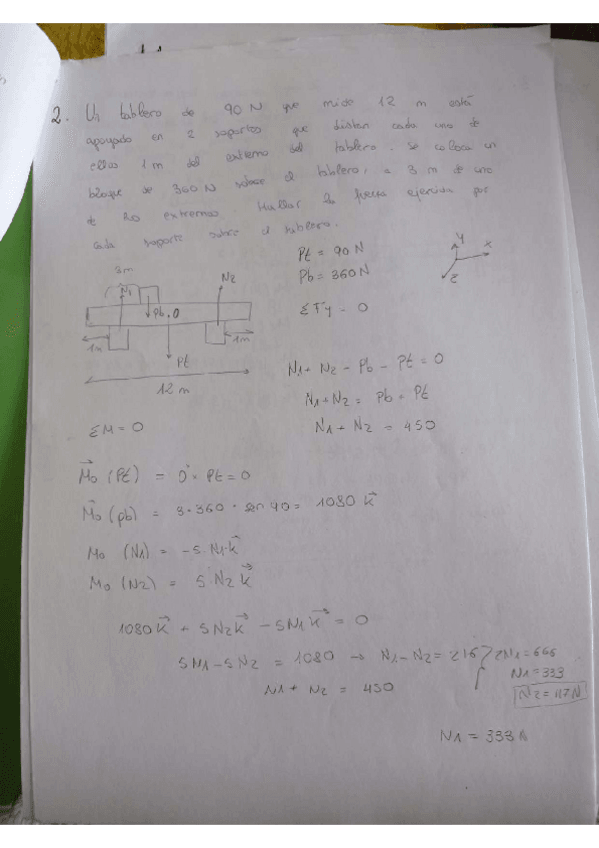 2. Un tablero de 90 N que mide 12 m está
apoyado en 2 soportes que distan cada uno de
ellos 1 m del extremo del tablero. Se coloca un
bloque de 360 N sobre el tablero, a 3 m de uno
de los extremos. Hallar la fuerza ejercida por
cada soporte sobre el tablero.
Pt = 90 N
Pb = 360 N
ΣFy = 0
y
x
z
3m
N1
N2
Pb
O
1m
1m
Pt
12 m
N1 + N2 - Pb - Pt = 0
N1 + N2 = Pb = Pt
N1 + N2 = 450
ΣM = 0
M⃗o (Pt) = 0 · Pt = 0
M⃗o (pb) = 3 · 360 · sen 90 = 1080 k⃗
Mo (N1) = -5 · N1 k⃗
Mo (N2) = 5 · N2 k⃗
1080 k⃗ + 5N2 k⃗ - 5N1 k⃗ = 0
5N1 - 5N2 = 1080 → N1 - N2 = 216
N1 + N2 = 450
2N1 = 666
N1 = 333
N2 = 117 N
N1 = 333 N